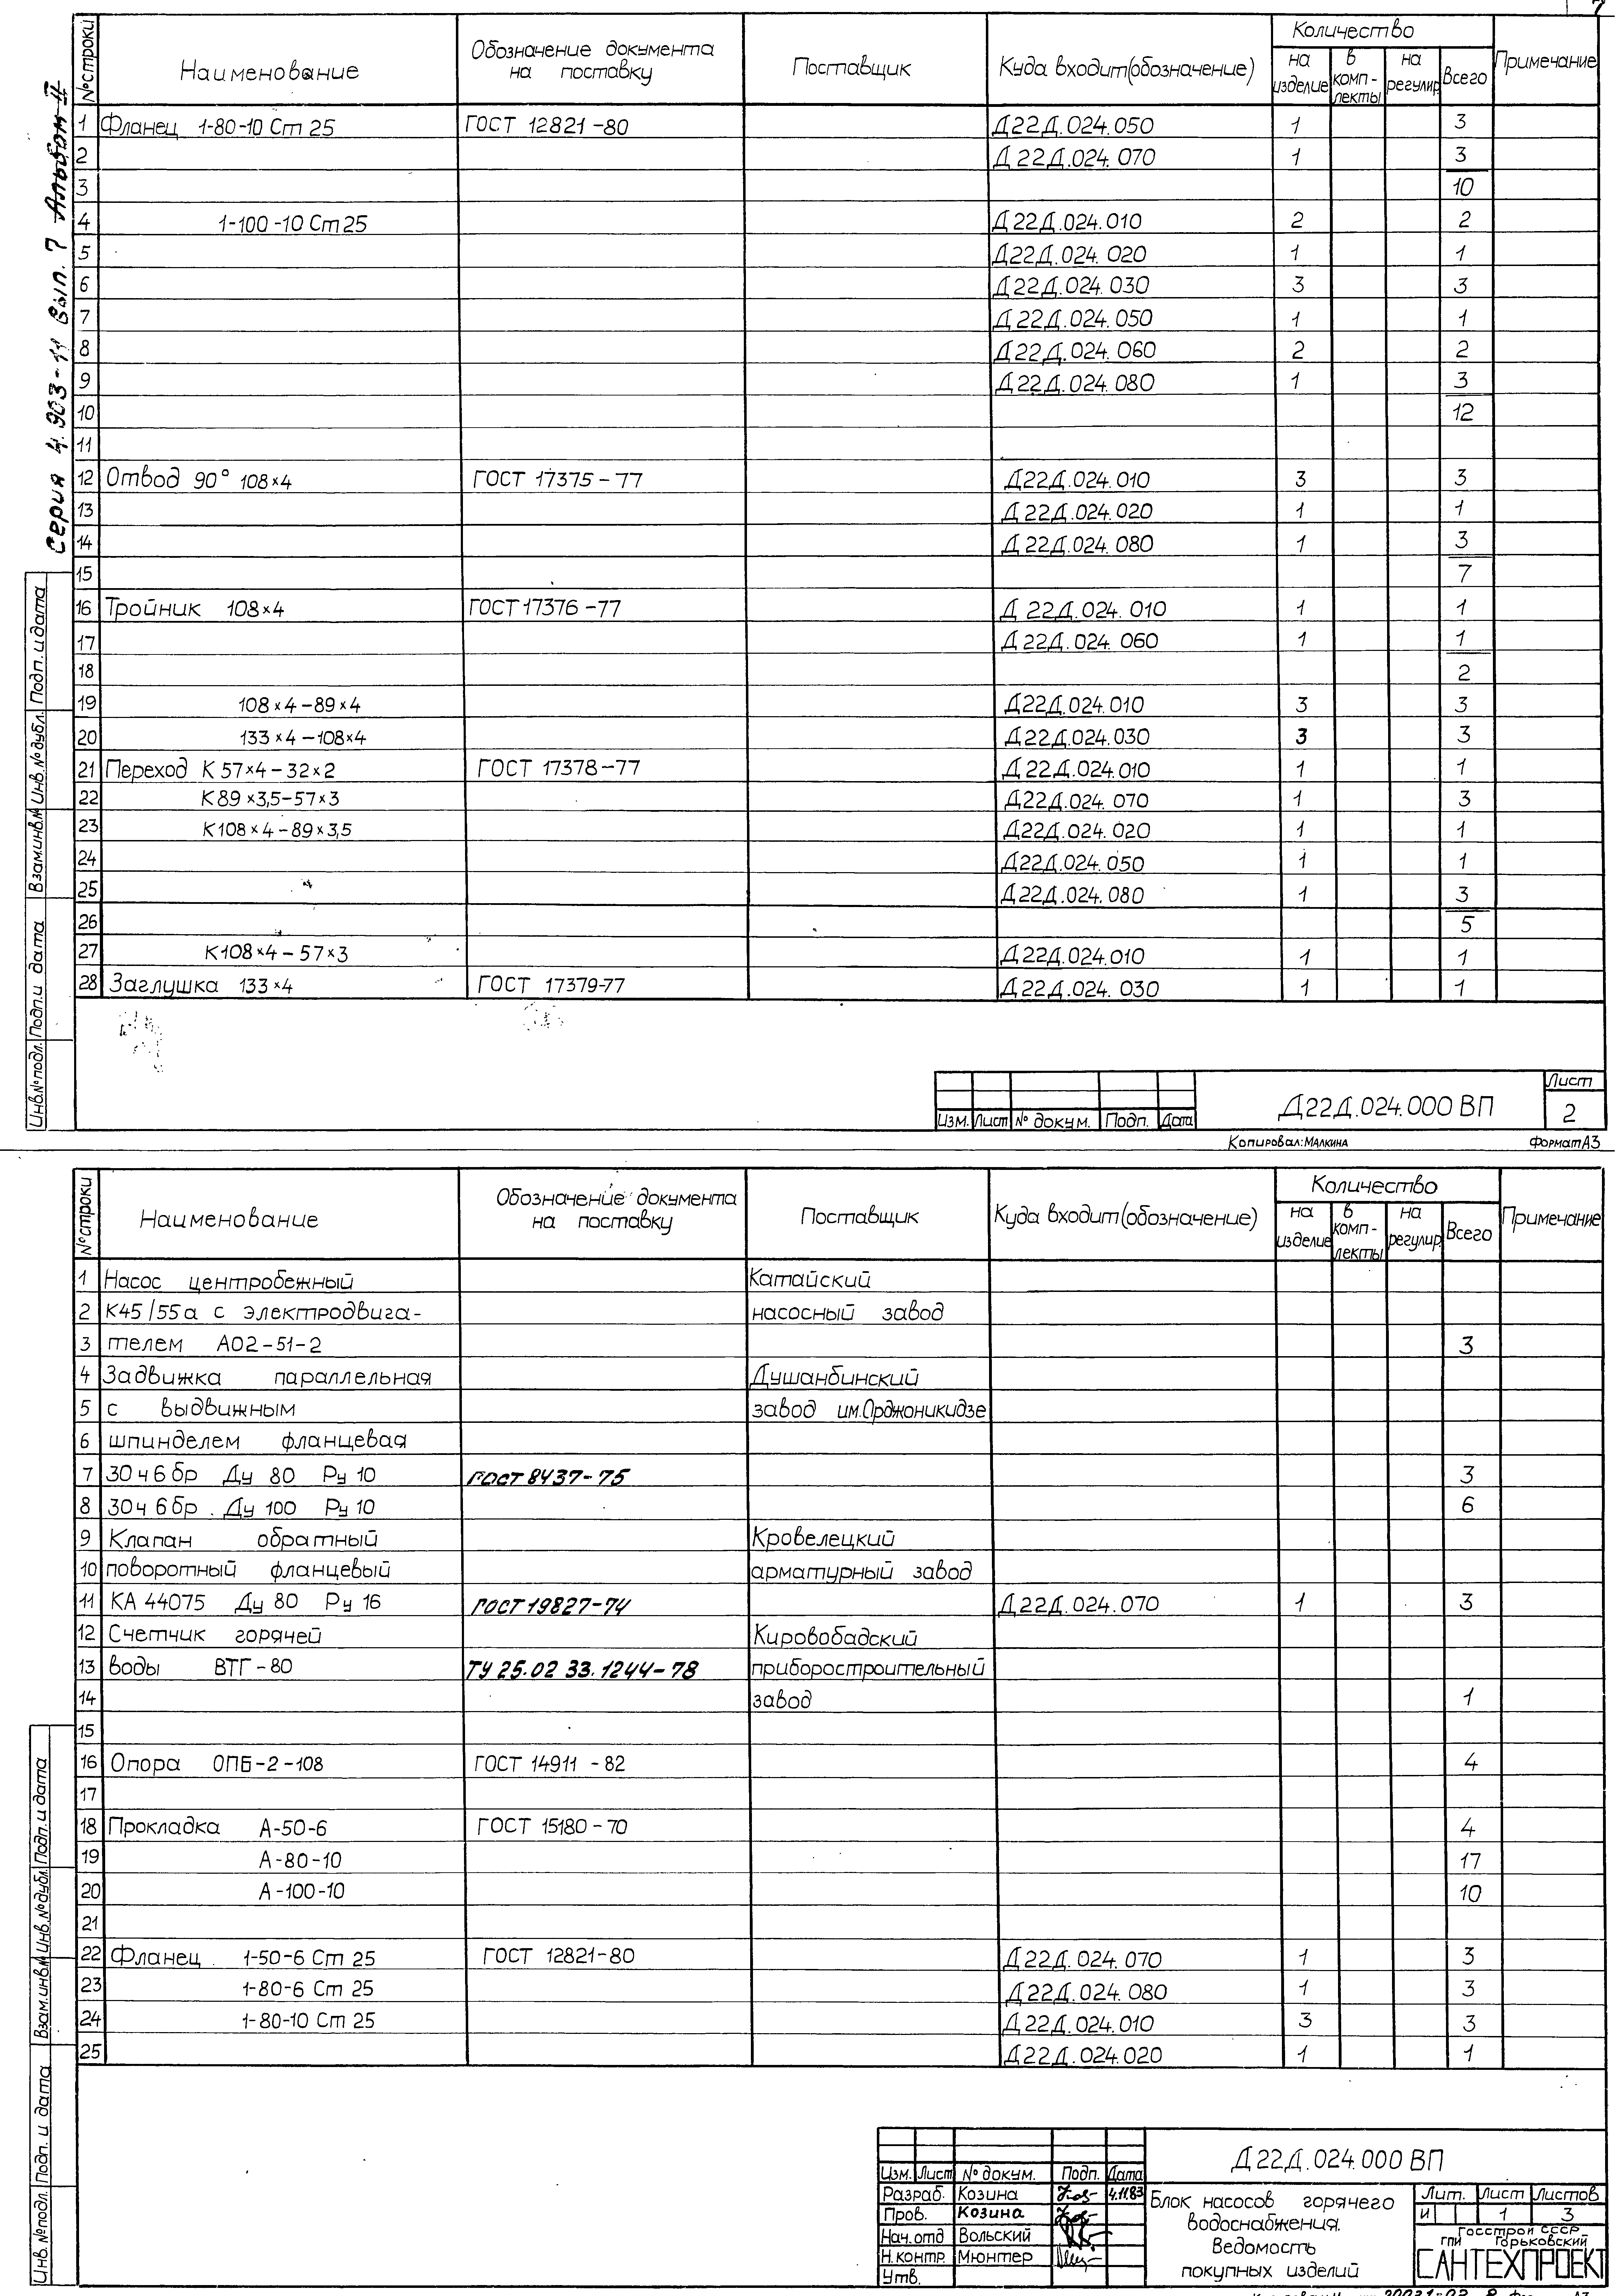 7
серия 4.903-11 Вып. 7 Альбом II
№ строки Наименование Обозначение документа на поставку Поставщик Куда входит (обозначение) Количество Примечание
на изделие в комп-лекты на регулир. Всего
1 Фланец 1-80-10 Ст 25 ГОСТ 12821-80 Д22Д.024.050 1 3
2 Д22Д.024.070 1 3
3 10
4 1-100-10 Ст 25 Д22Д.024.010 2 2
5 Д22Д.024.020 1 1
6 Д22Д.024.030 3 3
7 Д22Д.024.050 1 1
8 Д22Д.024.060 2 2
9 Д22Д.024.080 1 3
10 12
11
12 Отвод 90° 108×4 ГОСТ 17375-77 Д22Д.024.010 3 3
13 Д22Д.024.020 1 1
14 Д22Д.024.080 1 3
15 7
16 Тройник 108×4 ГОСТ 17376-77 Д22Д.024.010 1 1
17 Д22Д.024.060 1 1
18 2
19 108×4-89×4 Д22Д.024.010 3 3
20 133×4-108×4 Д22Д.024.030 3 3
21 Переход К 57×4-32×2 ГОСТ 17378-77 Д22Д.024.010 1 1
22 К89×3,5-57×3 Д22Д.024.070 1 3
23 К108×4-89×3,5 Д22Д.024.020 1 1
24 Д22Д.024.050 1 1
25 Д22Д.024.080 1 3
26 5
27 К108×4-57×3 Д22Д.024.010 1 1
28 Заглушка 133×4 ГОСТ 17379-77 Д22Д.024.030 1 1
Инв.№ подл. Подп. и дата Взам.инв.№ Инв.№ дубл. Подп. и дата
Изм. Лист № докум. Подп. Дата
Д22Д.024.000 ВП
Лист
2
Копировал: Малкина Формат А3
№ строки Наименование Обозначение документа на поставку Поставщик Куда входит (обозначение) Количество Примечание
на изделие в комп-лекты на регулир. Всего
1 Насос центробежный Катайский
2 К45/55а с электродвига- насосный завод
3 телем АО2-51-2 3
4 Задвижка параллельная Душанбинский
5 с выдвижным завод им.Орджоникидзе
6 шпинделем фланцевая
7 30ч6бр Ду 80 Ру 10 ГОСТ 8437-75 3
8 30ч6бр. Ду 100 Ру 10 6
9 Клапан обратный Кровелецкий
10 поворотный фланцевый арматурный завод
11 КА 44075 Ду 80 Ру 16 ГОСТ 19827-74 Д22Д.024.070 1 3
12 Счетчик горячей Кировобадский
13 воды ВТГ-80 ТУ 25.02 33.1244-78 приборостроительный
14 завод 1
15
16 Опора ОПБ-2-108 ГОСТ 14911-82 4
17
18 Прокладка А-50-6 ГОСТ 15180-70 4
19 А-80-10 17
20 А-100-10 10
21
22 Фланец 1-50-6 Ст 25 ГОСТ 12821-80 Д22Д.024.070 1 3
23 1-80-6 Ст 25 Д22Д.024.080 1 3
24 1-80-10 Ст 25 Д22Д.024.010 3 3
25 Д22Д.024.020 1 1
Инв.№ подл. Подп. и дата Взам.инв.№ Инв.№ дубл. Подп. и дата
Д22Д.024.000 ВП
Изм. Лист № докум. Подп. Дата
Разраб. Козина 4.11.83
Пров. Козина
Нач.отд Вольский
Н.контр. Мюнтер
Утв.
Блок насосов горячего
водоснабжения.
Ведомость
покупных изделий
Лит. Лист Листов
И 1 3
Госстрой СССР
ГПИ Горьковский
САНТЕХПРОЕКТ